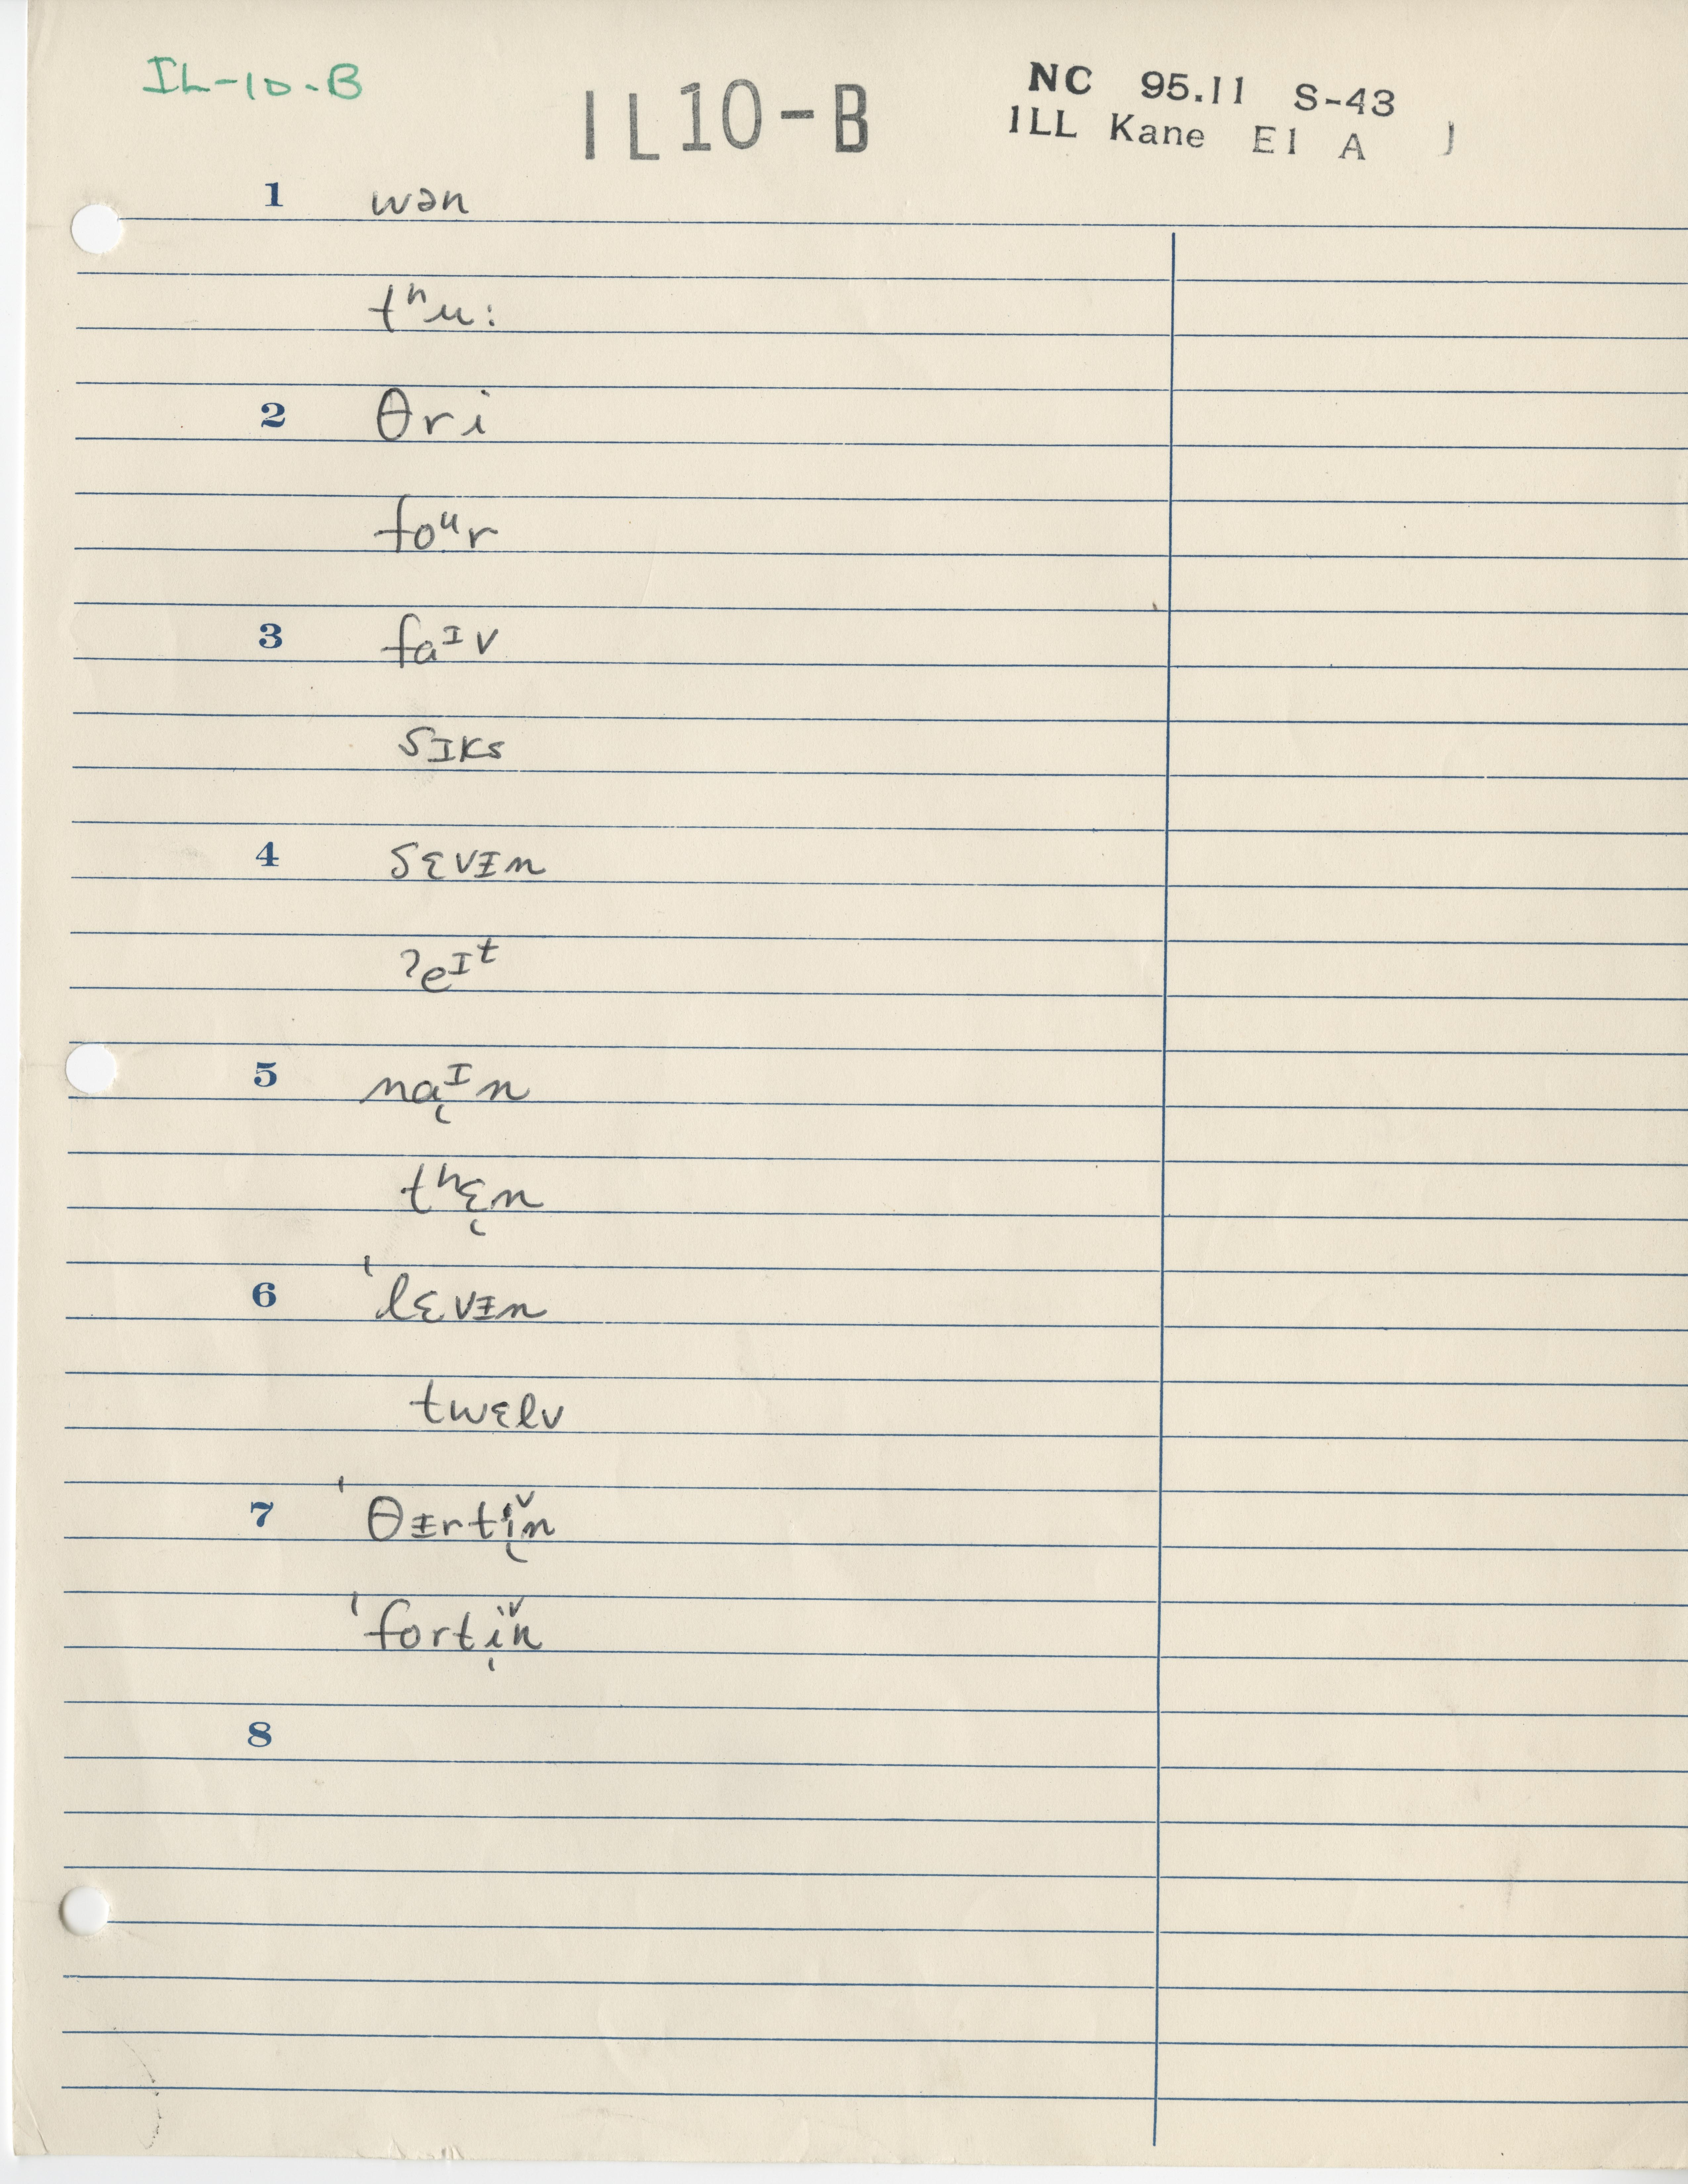 IL-10-B
IL10-B
NC 95.11 S-43
ILL Kane El A J
1 wən
tʰu:
2 θri
foᵘr
3 faᶦv
sɪks
4 sɛvᵻn
ʔeɪᵗ
5 na̜ᶦn
tʰɛ̜n
6 ˈlɛvᵻn
twɛlv
7 ˈθᵻrtǐ̜n
ˈfortǐ̜n
8